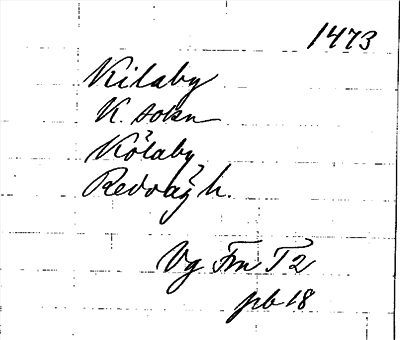 1473
Kilaby
K. sokn
Kölaby,
Redvägh.
Vg Fm T2
pb 18